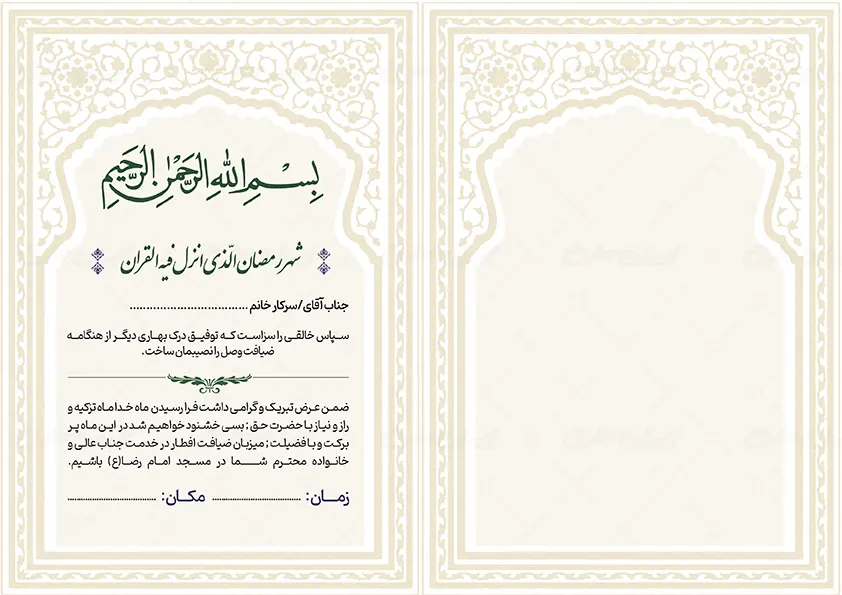 بِسْمِ اللهِ الرَّحْمٰنِ الرَّحِيمِ
شهر رمضان الّذی انزل فیه القران
جناب آقای/سرکار خانم ...................................
سپاس خالقی را سزاست که توفیق درک بهاری دیگر از هنگامه
ضیافت وصل را نصیبمان ساخت.
ضمن عرض تبریک و گرامی داشت فرا رسیدن ماه خدا ماه تزکیه و
راز و نیاز با حضرت حق؛ بسی خشنود خواهیم شد در این ماه پر
برکت و با فضیلت؛ میزبان ضیافت افطار در خدمت جناب عالی و
خانواده محترم شما در مسجد امام رضا(ع) باشیم.
زمان: .............................. مکان: ..............................